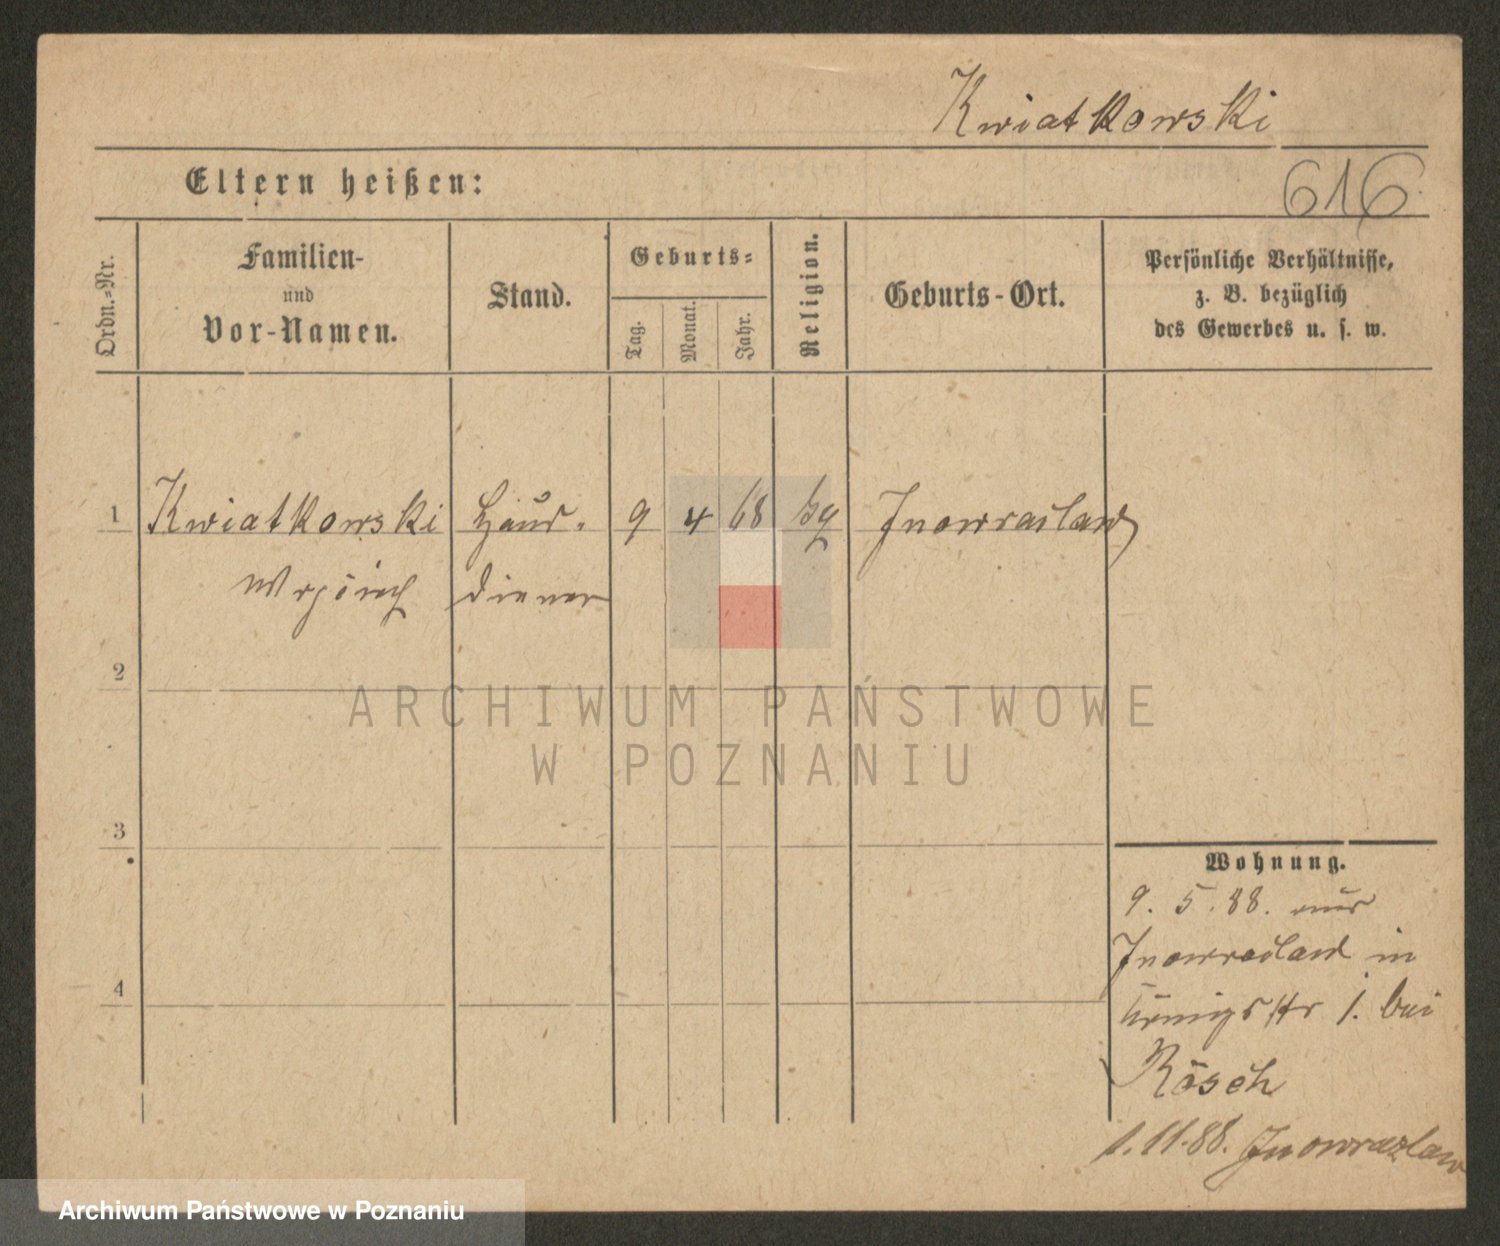 Kwiatkowski
616
Eltern heißen:
Ordn.-Nr.
Familien-
und
Vor-Namen.
Stand.
Geburts-
Tag.
Monat.
Jahr.
Religion.
Geburts-Ort.
Persönliche Verhältnisse,
z. B. bezüglich
des Gewerbes u. s. w.
1 Kwiatkowski Haus- 9 4 68 Inowraclaw
diener
2
3
4
Wohnung.
9. 5. 88. aus
Inowraclaw in
Königsstr 1. bei
Rösch
1.11.88. Inowrazlaw
ARCHIWUM PAŃSTWOWE
W POZNANIU
Archiwum Państwowe w Poznaniu